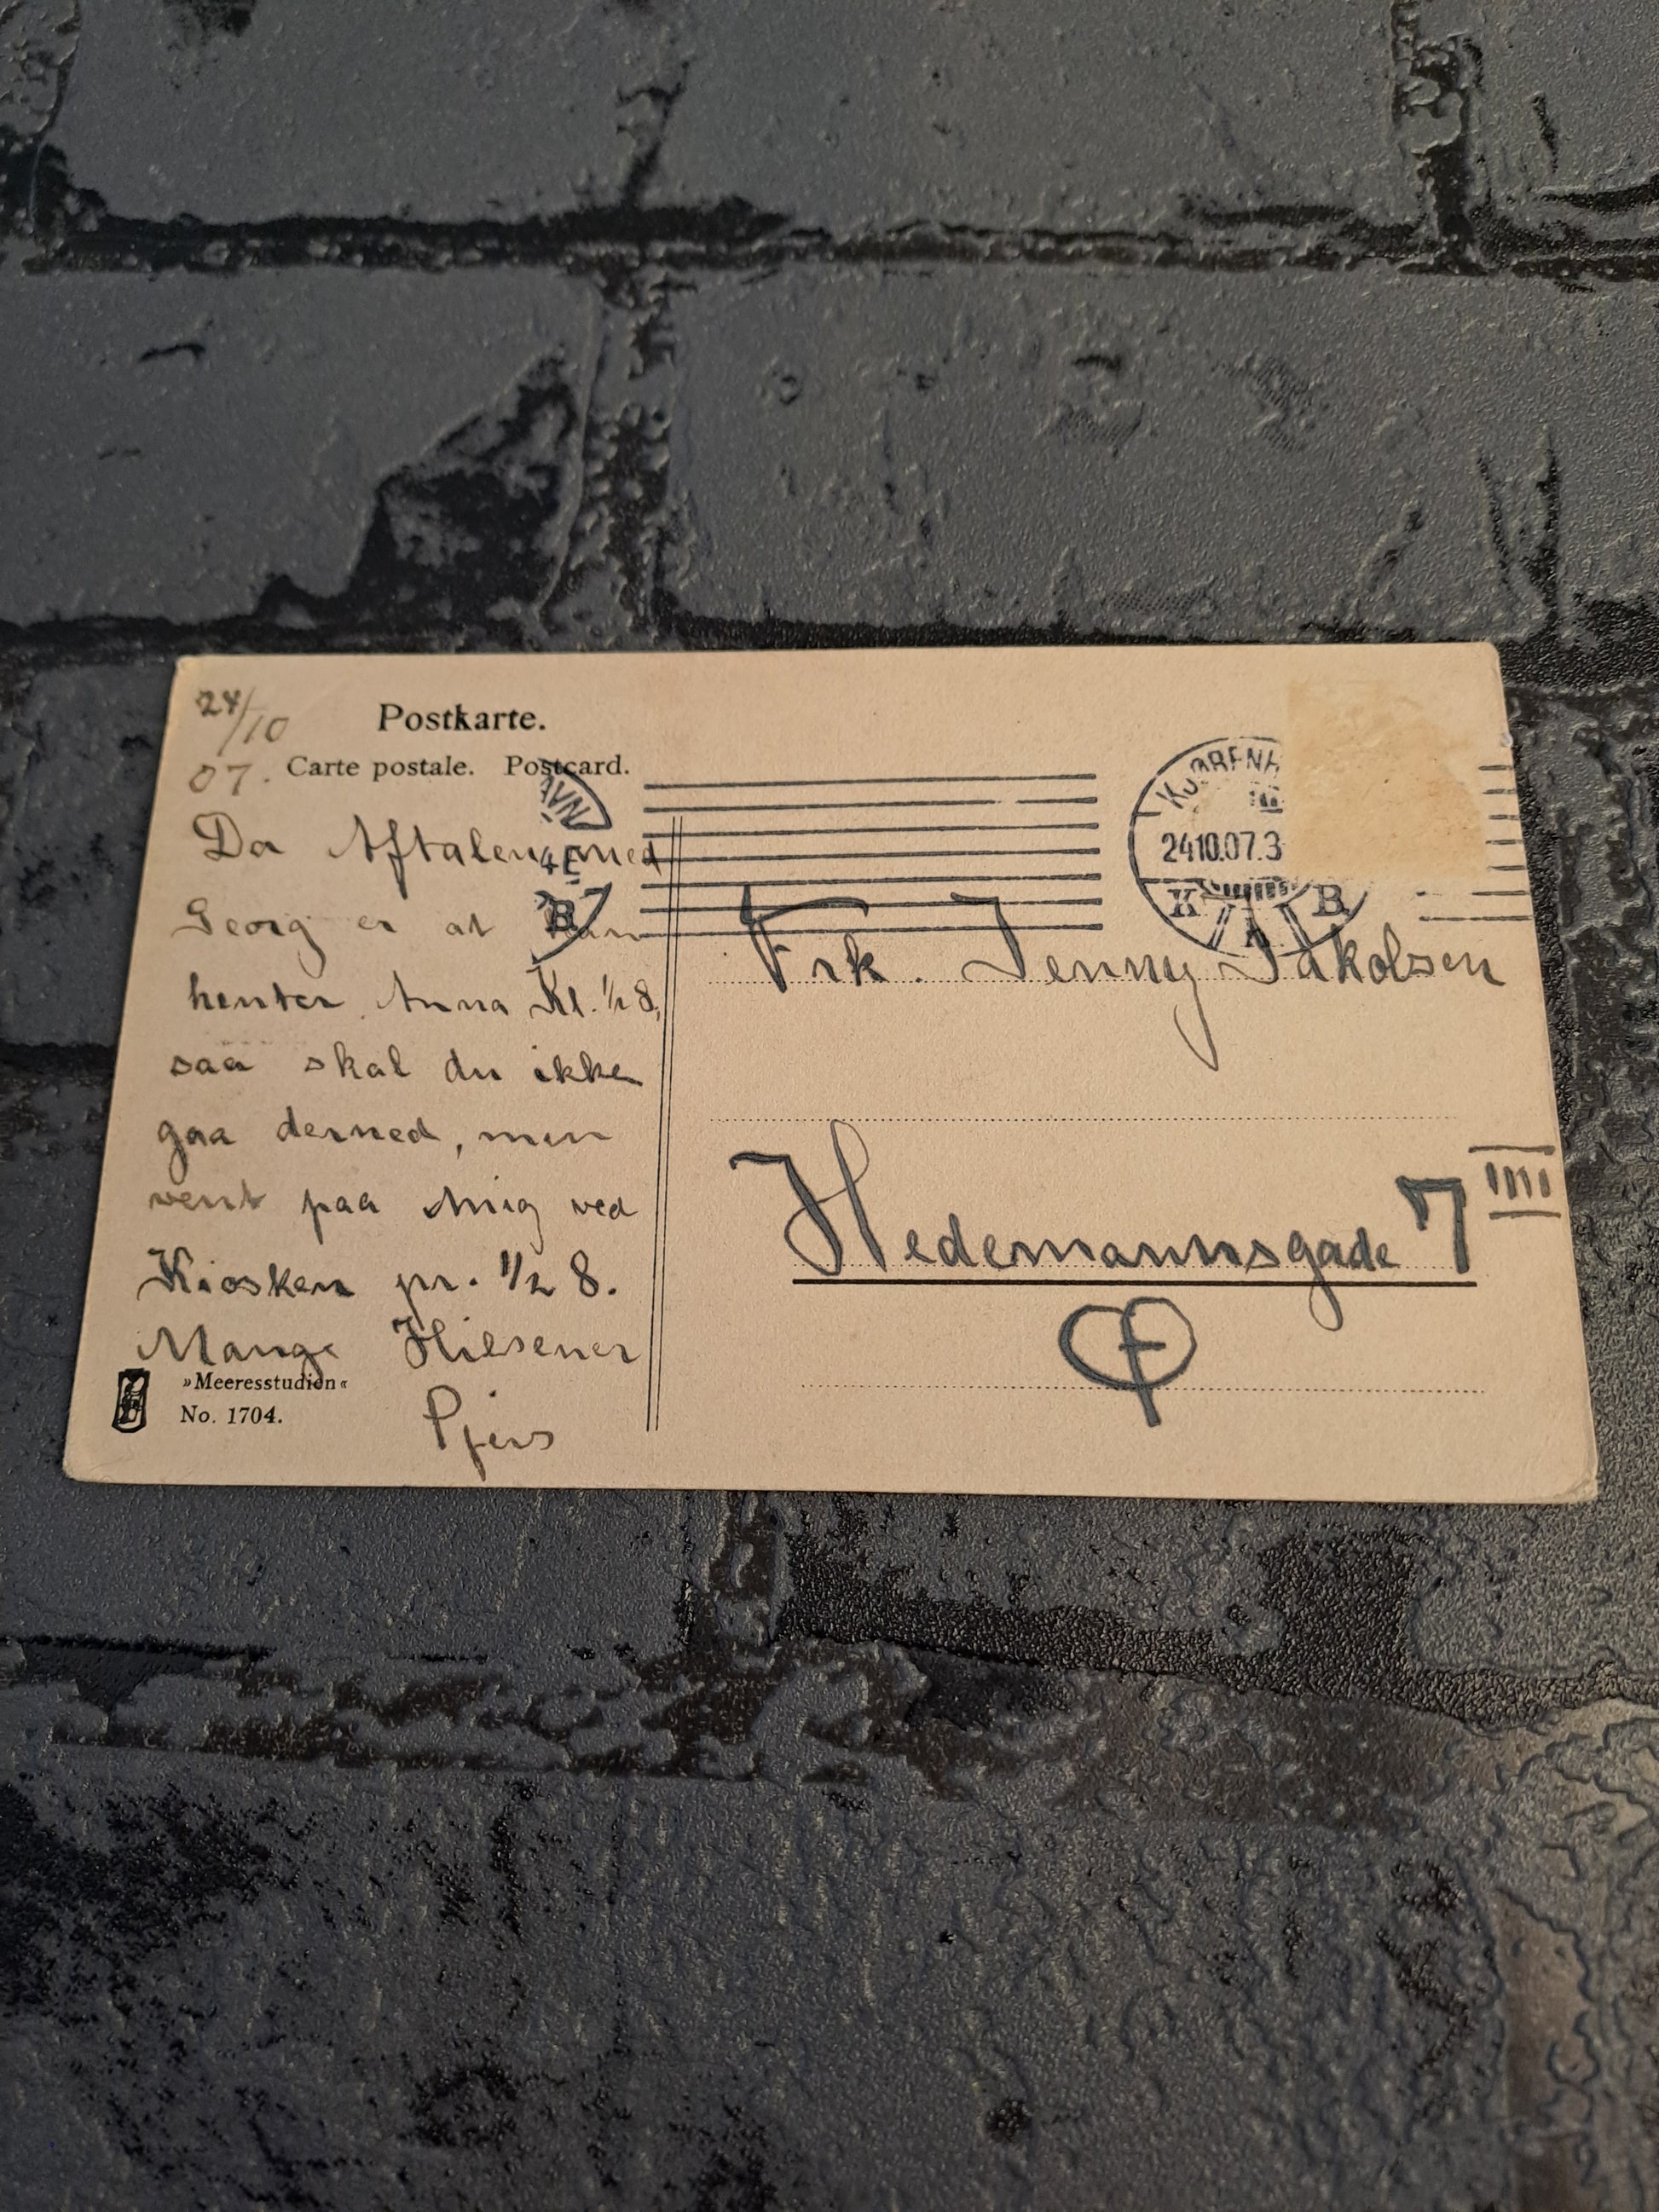 24/10
07.
Postkarte.
Carte postale. Postcard.
Da Aftalen med
Georg er at han
henter Anna Kl. 1/2 8,
saa skal du ikke
gaa derned, men
vent paa mig ved
Kiosken pr. 1/2 8.
Mange Hilsener
»Meeresstudien«
No. 1704.
KJØBENH
24.10.07.3
K B
Frk. Jenny Jakobsen
Hedemannsgade 7 IIII